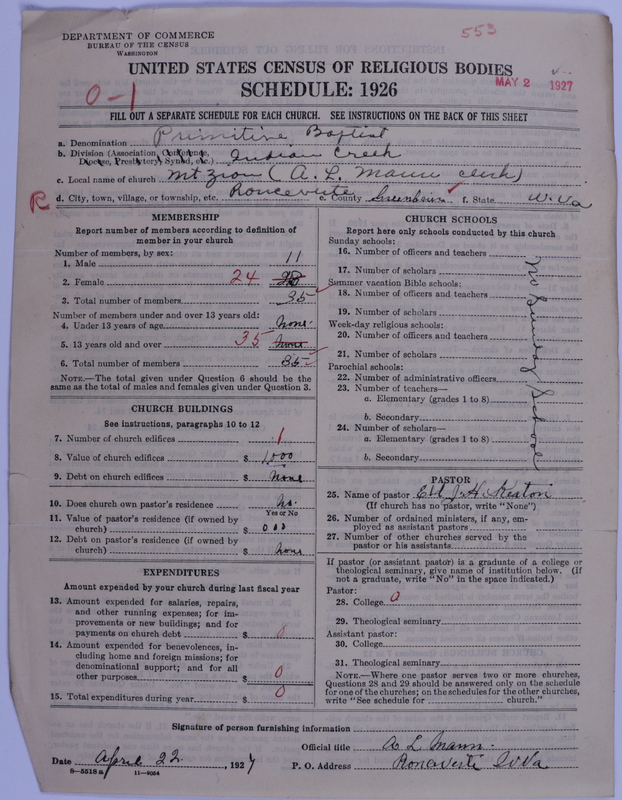 DEPARTMENT OF COMMERCE
BUREAU OF THE CENSUS
WASHINGTON
553
UNITED STATES CENSUS OF RELIGIOUS BODIES
SCHEDULE: 1926
MAY 2 1927
0-1
FILL OUT A SEPARATE SCHEDULE FOR EACH CHURCH. SEE INSTRUCTIONS ON THE BACK OF THIS SHEET
a. Denomination Primitive Baptist
b. Division (Association, Conference, Diocese, Presbytery, Synod, etc.) Indian Creek
c. Local name of church Mt Zion (A. L. Mann clerk)
R d. City, town, village, or township, etc. Ronceverte e. County Greenbrier f. State W. Va
MEMBERSHIP
Report number of members according to definition of
member in your church
Number of members, by sex:
1. Male 11
2. Female 24
3. Total number of members 35
Number of members under and over 13 years old:
4. Under 13 years of age none
5. 13 years old and over 35 none
6. Total number of members 35
NOTE.—The total given under Question 6 should be
same as the total of males and females given under Question 3.
CHURCH BUILDINGS
See instructions, paragraphs 10 to 12
7. Number of church edifices 1
8. Value of church edifices $ 1,000
9. Debt on church edifices $ none
10. Does church own pastor's residence no.
Yes or No
11. Value of pastor's residence (if owned by
church) $ 000
12. Debt on pastor's residence (if owned by
church) $ none
EXPENDITURES
Amount expended by your church during last fiscal year
13. Amount expended for salaries, repairs,
and other running expenses; for im-
provements or new buildings; and for
payments on church debt $ 0
14. Amount expended for benevolences, in-
cluding home and foreign missions; for
denominational support; and for all
other purposes $ 0
15. Total expenditures during year $ 0
CHURCH SCHOOLS
Report here only schools conducted by this church
Sunday schools:
16. Number of officers and teachers
17. Number of scholars
Summer vacation Bible schools:
18. Number of officers and teachers
19. Number of scholars
Week-day religious schools:
20. Number of officers and teachers
21. Number of scholars
Parochial schools:
22. Number of administrative officers
23. Number of teachers—
a. Elementary (grades 1 to 8)
b. Secondary
24. Number of scholars—
a. Elementary (grades 1 to 8)
b. Secondary
No Sunday School
PASTOR
25. Name of pastor Eld J. H. Keaton
(If church has no pastor, write "None")
26. Number of ordained ministers, if any, em-
ployed as assistant pastors
27. Number of other churches served by the
pastor or his assistants
If pastor (or assistant pastor) is a graduate of a college or
theological seminary, give name of institution below. (If
not a graduate, write "No" in the space indicated.)
Pastor:
28. College 0
29. Theological seminary
Assistant pastor:
30. College
31. Theological seminary
NOTE.—Where one pastor serves two or more churches,
Questions 28 and 29 should be answered only on the schedule
for one of the churches; on the schedules for the other churches,
write "See schedule for church."
Signature of person furnishing information
Official title A L Mann.
Date April 22, 1927 P. O. Address Ronceverte W Va
8—5518a 11—9054